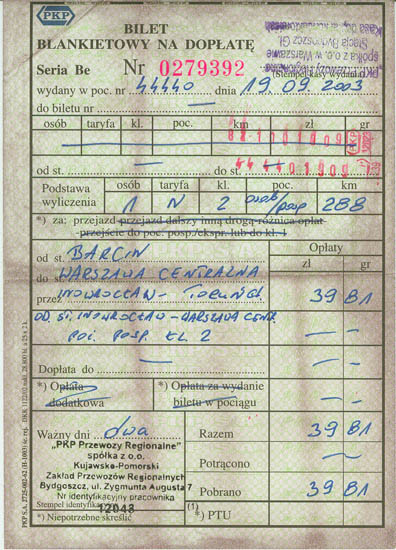 PKP
BILET
BLANKIETOWY NA DOPŁATĘ
Seria Be Nr 0279392
(Stempel kasy wydania)
wydany w poc. nr 44440 dnia 19.09.2003
do biletu nr —
osób taryfa kl. poc. km zł gr
od st. — do st.
Podstawa wyliczenia
osób taryfa kl. poc. km
1 N 2 osob/posp 288
*) za: przejazd przejazd dalszy inną drogą różnica opłat
przejście do poc. posp./ekspr. lub do kl. 1
Opłaty
zł gr
od st. BARCIN
do st. WARSZAWA CENTRALNA
przez INOWROCŁAW - TORUŃ GŁ. 39 81
OD ST. INOWROCŁAW - WARSZAWA CENTR. — —
POC. POSP. KL. 2 — —
Dopłata do — — —
*) Opłata dodatkowa
*) Opłata za wydanie biletu w pociągu
Ważny dni dwa
Razem 39 81
„PKP Przewozy Regionalne"
spółka z o.o.
Kujawsko-Pomorski
Zakład Przewozów Regionalnych
Bydgoszcz, ul. Zygmunta Augusta 7
Nr identyfikacyjny pracownika
12048
Potrącono
Pobrano 39 81
Stempel identyfikat.
(1)
*) Niepotrzebne skreślić
*) PTU